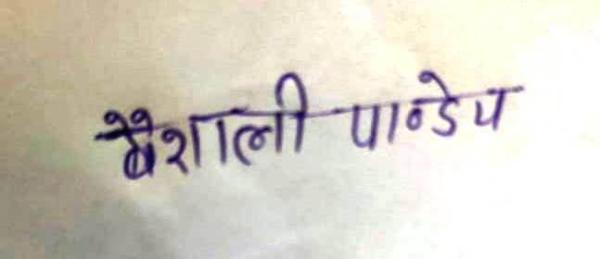 वैशाली पाण्डेय